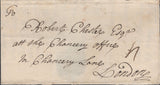 To
Robert Chester Esqr
att the Chancery office
In Chancery Lane
London